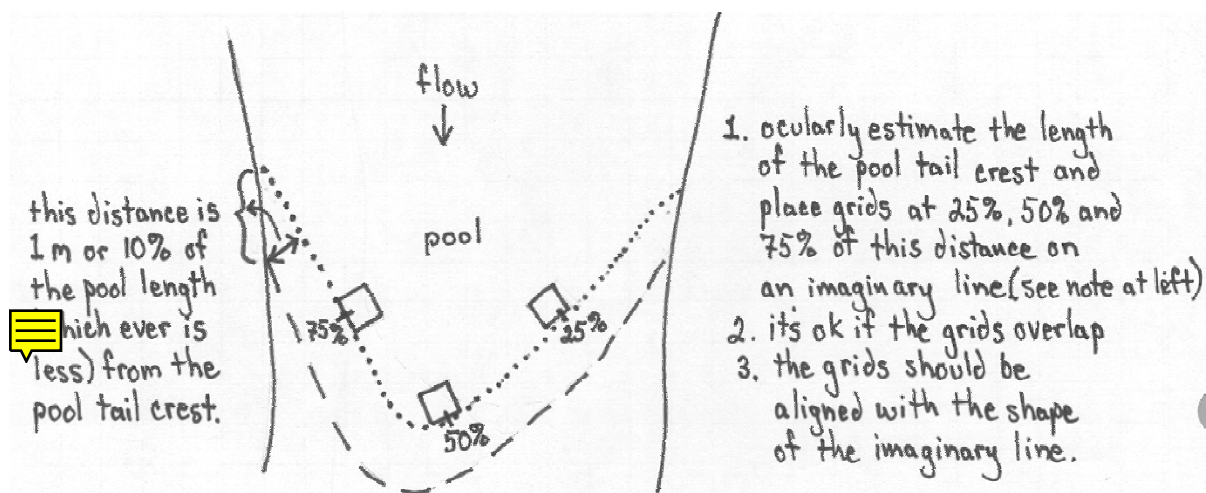 flow
pool
this distance is
1m or 10% of
the pool length
hich ever is
less) from the
pool tail crest.
75%
50%
25%
1. ocularly estimate the length
of the pool tail crest and
place grids at 25%, 50% and
75% of this distance on
an imaginary line (see note at left)
2. it's ok if the grids overlap
3. the grids should be
aligned with the shape
of the imaginary line.